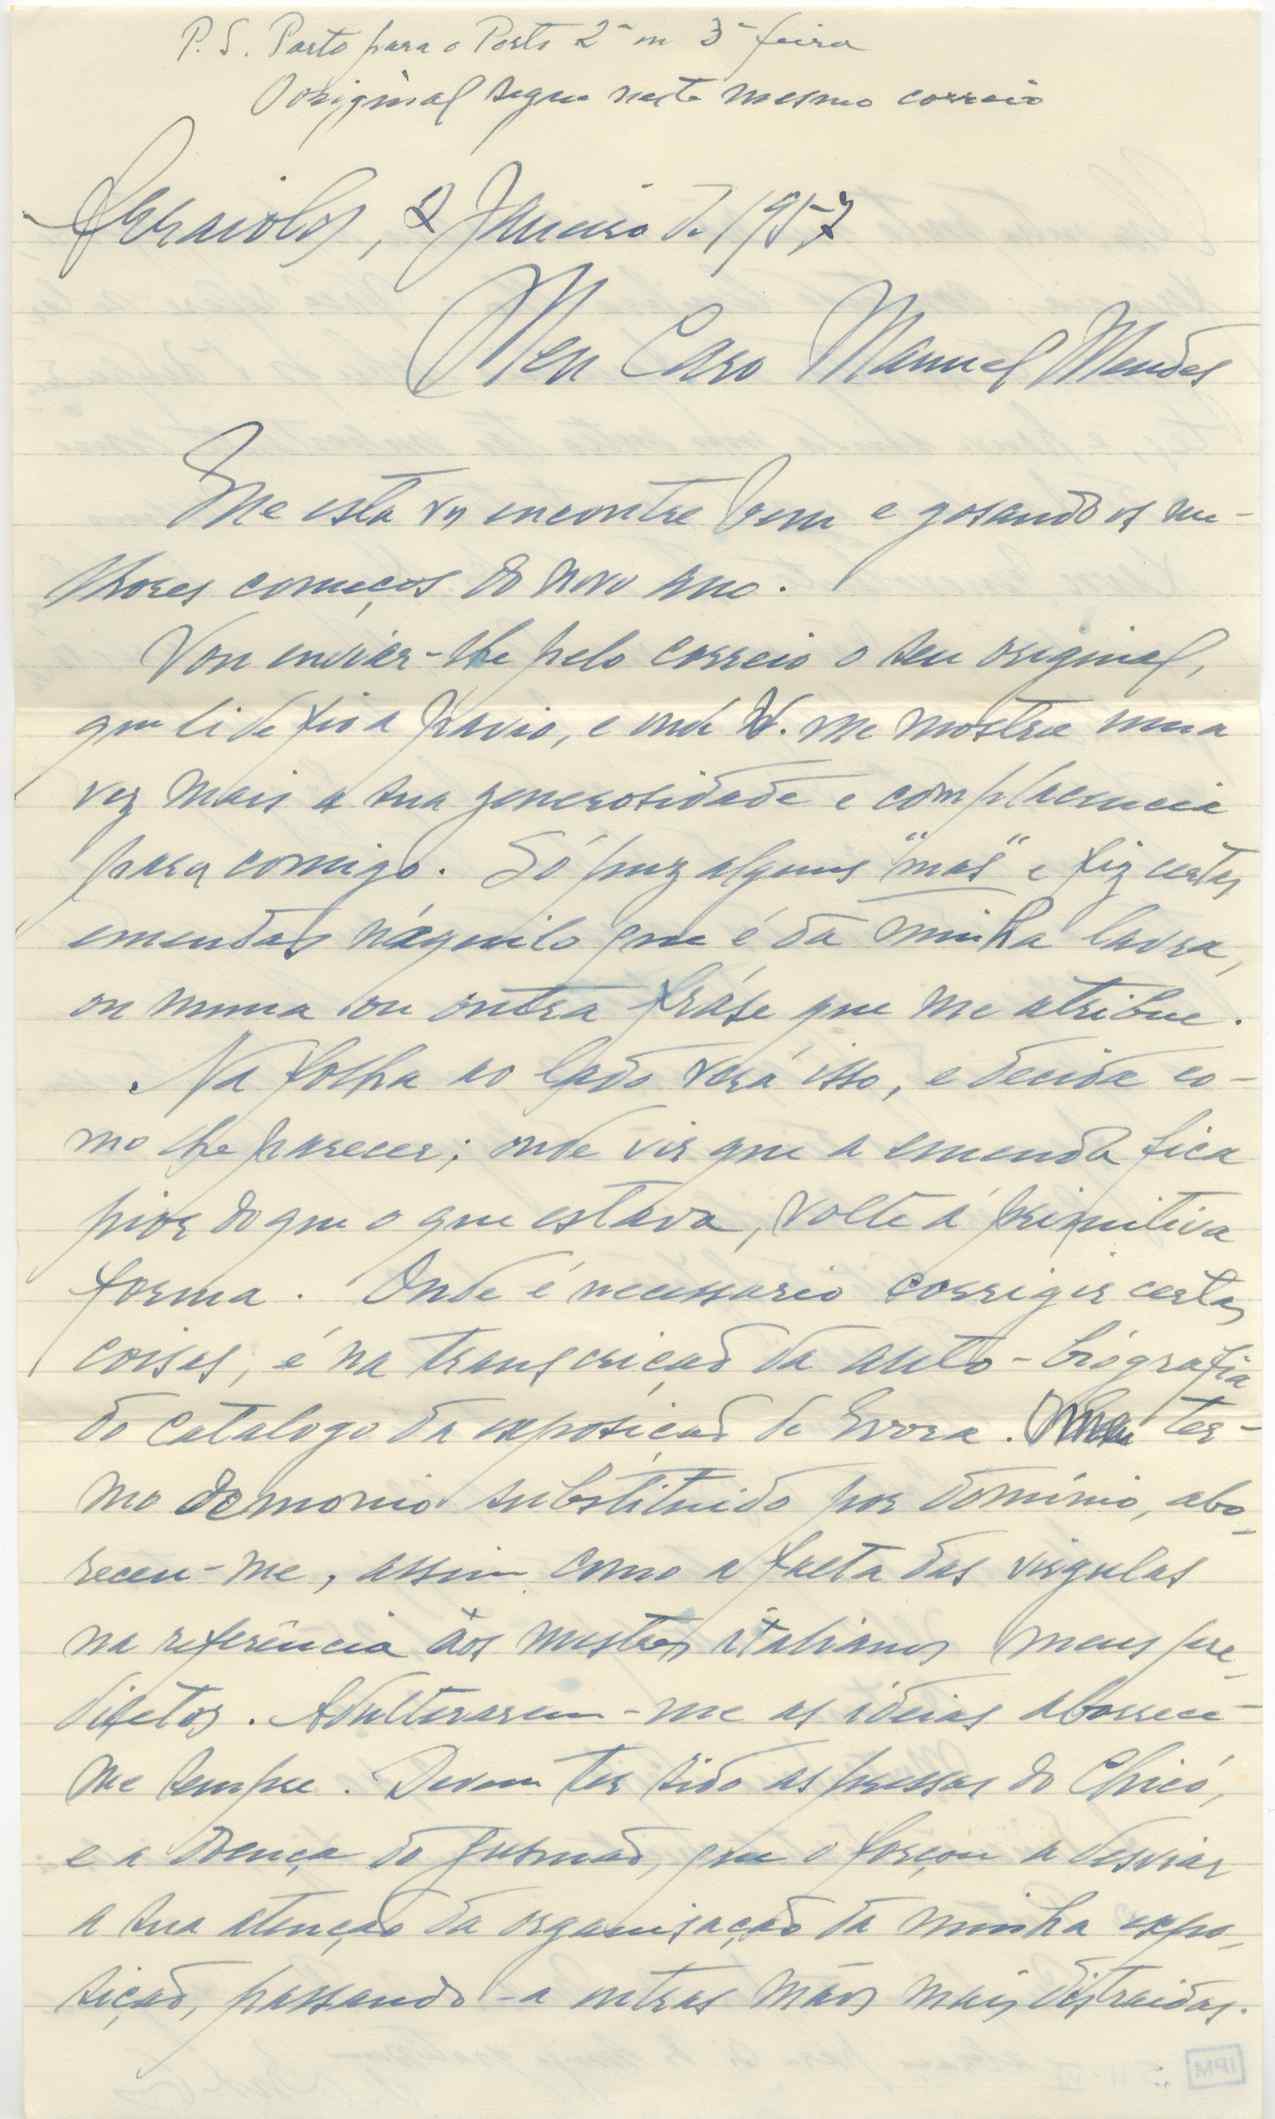 P.S. Parto para o Porto 2ª ou 3ª feira
O original segue neste mesmo correio
Arraiolos, 2 Janeiro de 1957
Meu Caro Manuel Mendes
Que esta vá encontre bem e gosando os me-
lhores começos do novo ano.
Vou enviar-lhe pelo correio o seu original,
que li de fio a pavio, e onde V. me mostra uma
vez mais a sua generosidade e complacencia
para comigo. Só puz alguns "mas" e fiz certas
emendas náquilo que é da minha lavra,
ou numa ou outra fráse que me atribue.
Na folha ao lado verá isso, e decida co-
mo lhe parecer; onde vir que a emenda fica
pior do que o que estava, volte á primitiva
forma. Onde é necessario corrigir certas
coisas, é na transcrição da auto-biógrafia
do catalogo da exposição de Evora. O ter-
mo demonio substituido por dominio, abo-
receu-me, assim como a falta das virgulas
na referência aos mestres italianos meus pre-
diletos. Adulterarem-me as ideias aborrece-
me sempre. Devem ter sido as pressas do Chicó,
e a doença do Gusmão, que o forçou a desviar
a sua atenção da organisação da minha expo-
sição, passando-a outras mãos mais distraidas.
IPM